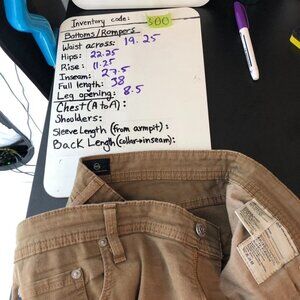 Inventory code: 500
Bottoms/Rompers
Waist across: 19.25
Hips: 22.25
Rise: 11.25
Inseam: 27.5
Full length: 38
Leg opening: 8.5
Chest (A to A):
Shoulders:
Sleeve Length (from armpit):
Back Length (collar→inseam):